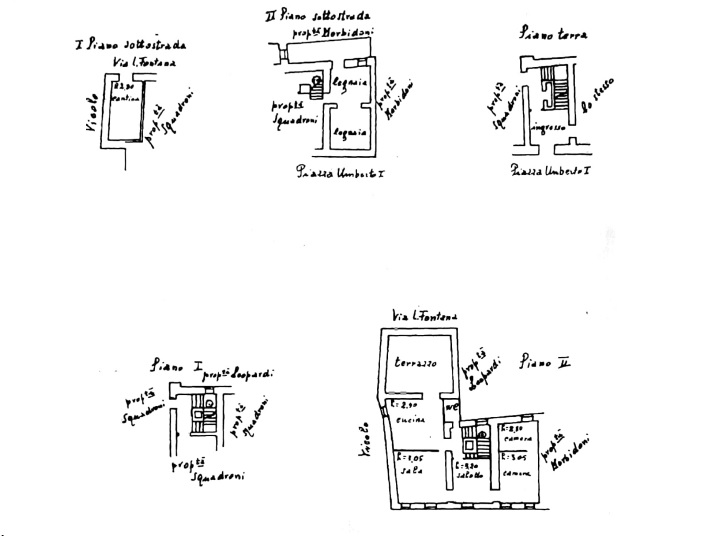 I Piano sottostrada
Via L. Fontana
h 2,90
cantina
Vicolo
prop.tà
Squadroni
II Piano sottostrada
prop.tà Morbidoni
legnaia
prop.tà
Squadroni
prop.tà
Morbidoni
legnaia
Piazza Umberto I
Piano terra
prop.tà
Squadroni
lo stesso
ingresso
Piazza Umberto I
Piano I
prop.tà Leopardi
prop.tà
Squadroni
prop.tà
Squadroni
prop.tà
Squadroni
Via L. Fontana
terrazzo
prop.tà
Leopardi
Piano II
h=2,90
cucina
wc
Vicolo
h=3,05
sala
h=3,20
salotto
camera
h=3,05
camera
prop.tà
Morbidoni